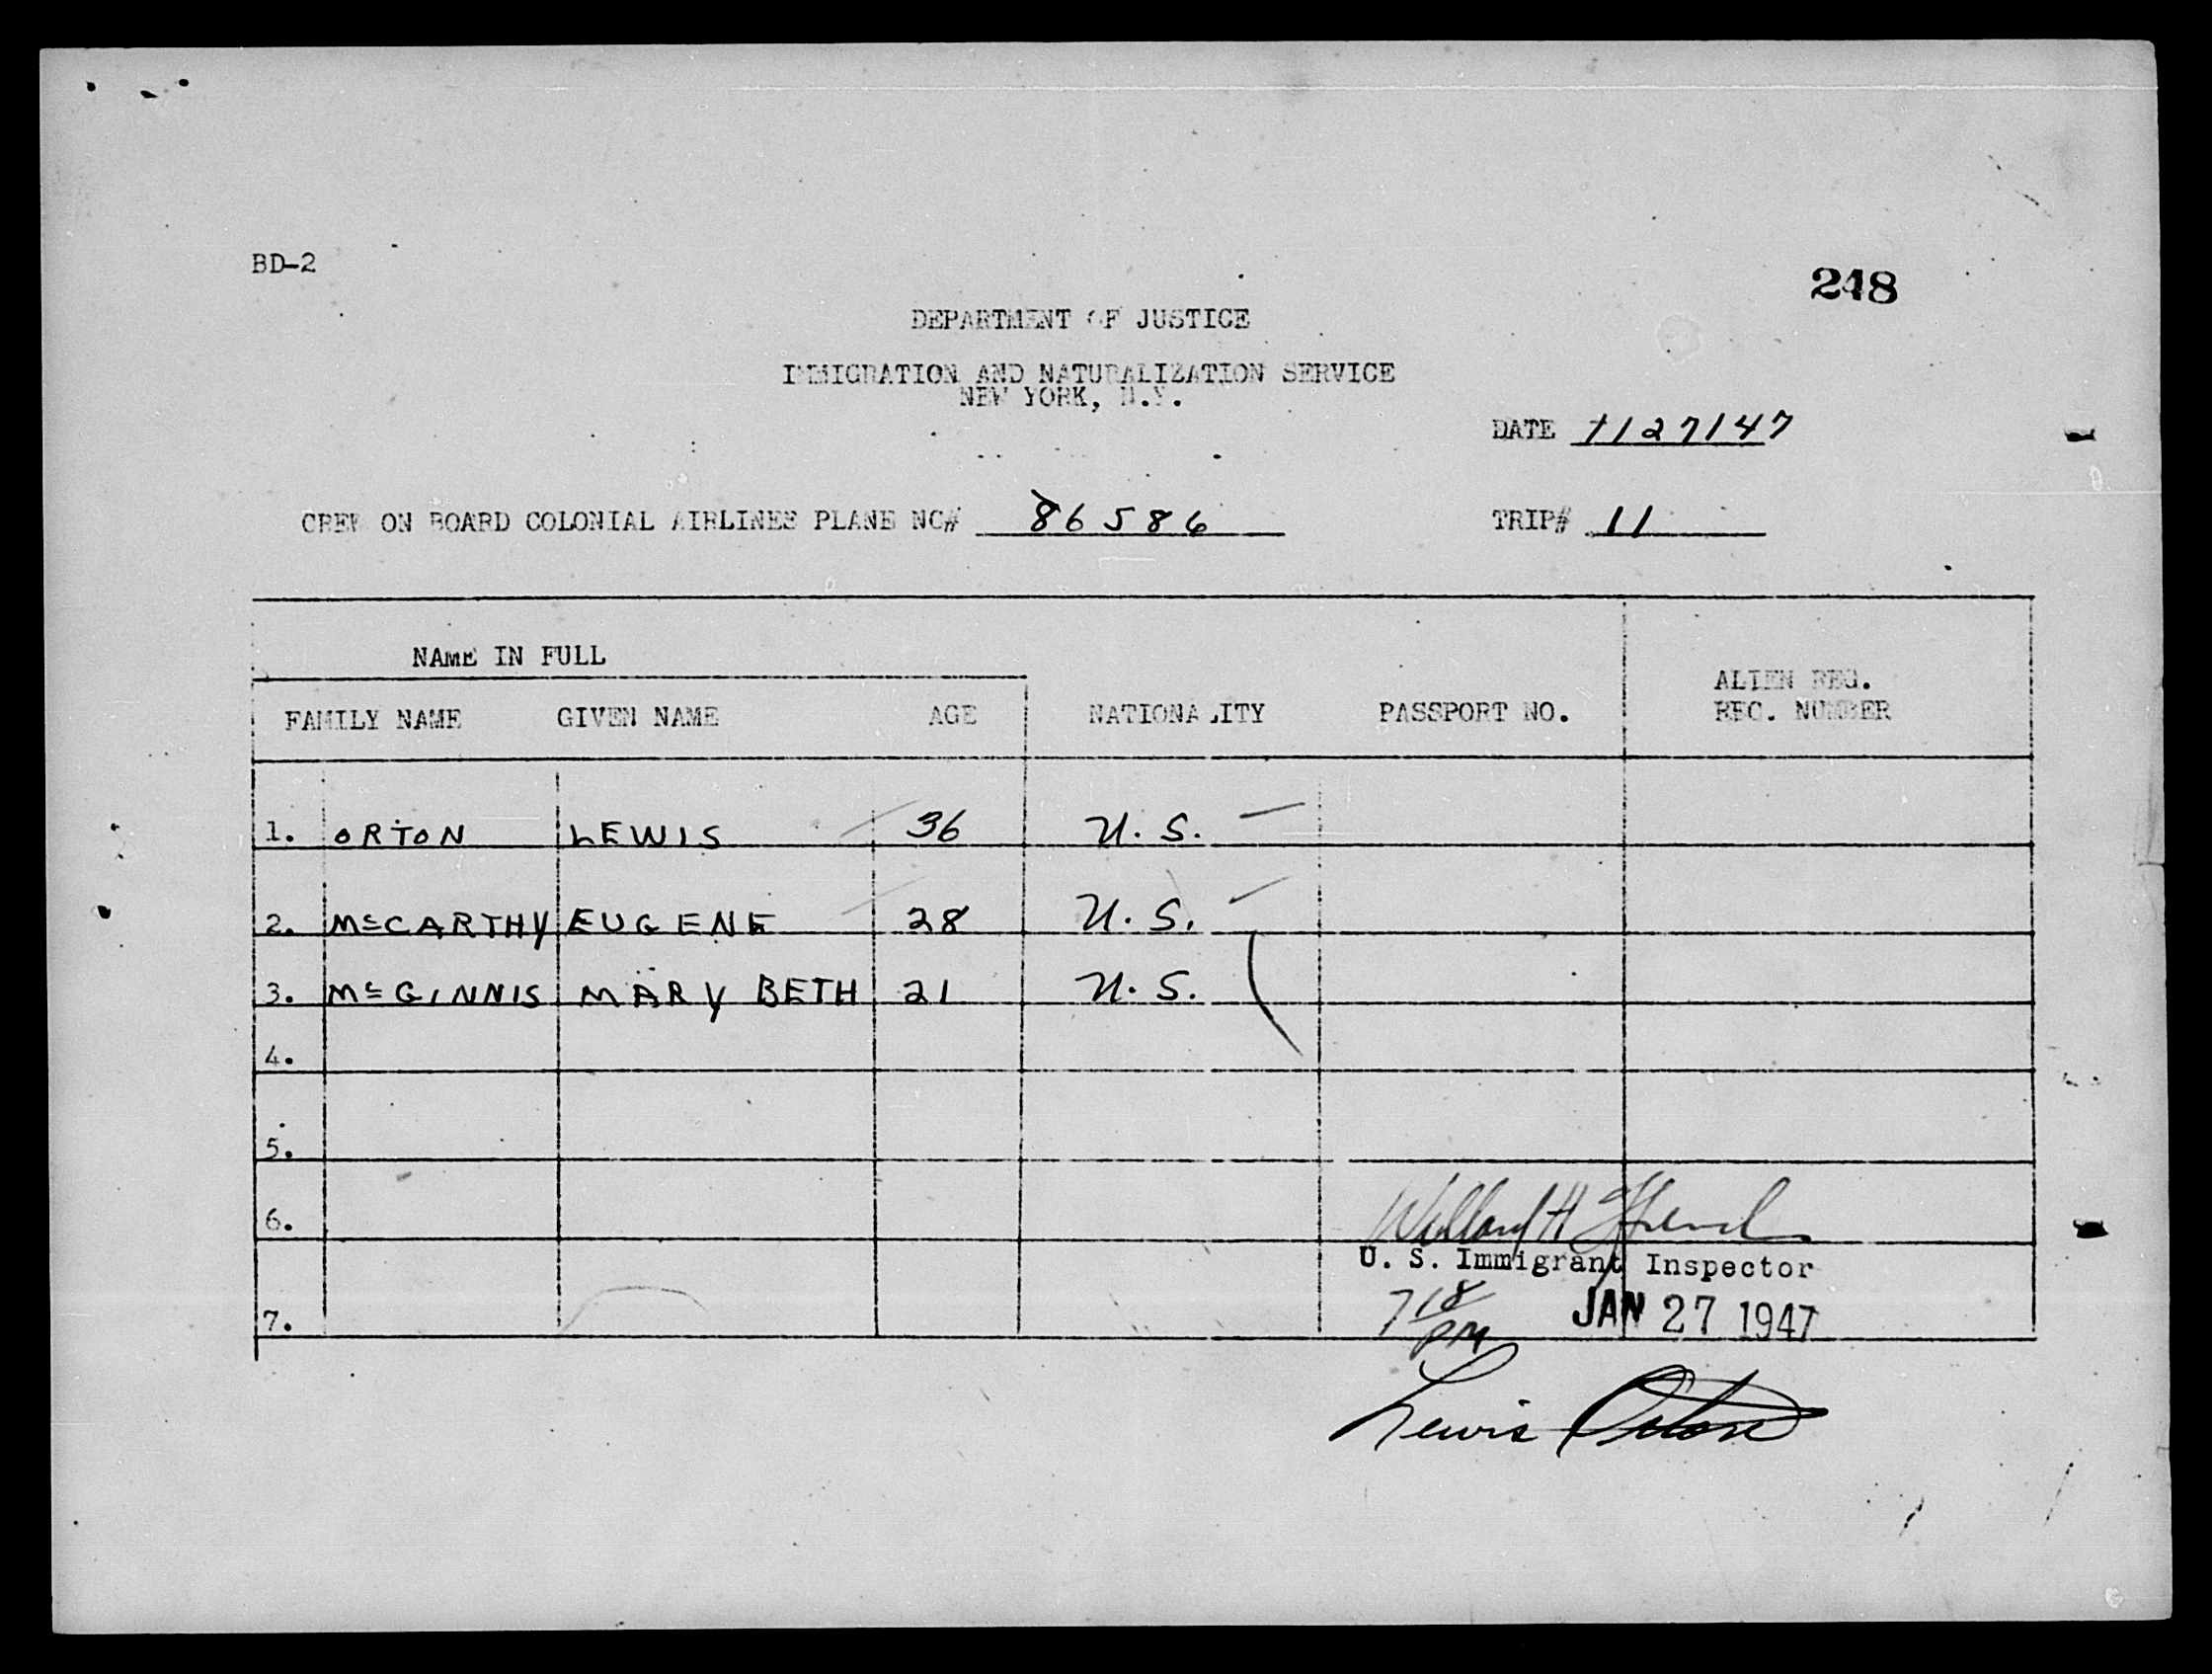 BD-2
248
DEPARTMENT OF JUSTICE
IMMIGRATION AND NATURALIZATION SERVICE
NEW YORK, N.Y.
DATE 1/27/47
CREW ON BOARD COLONIAL AIRLINES PLANE NC# 86586 TRIP# 11
NAME IN FULL
ALIEN REG.
FAMILY NAME GIVEN NAME AGE NATIONALITY PASSPORT NO. REC. NUMBER
1. ORTON LEWIS 36 U.S.
2. McCARTHY EUGENE 28 U.S.
3. McGINNIS MARY BETH 21 U.S.
4.
5.
6. Willard H
U. S. Immigrant Inspector
7. 7 18 PM JAN 27 1947
Lewis Orton